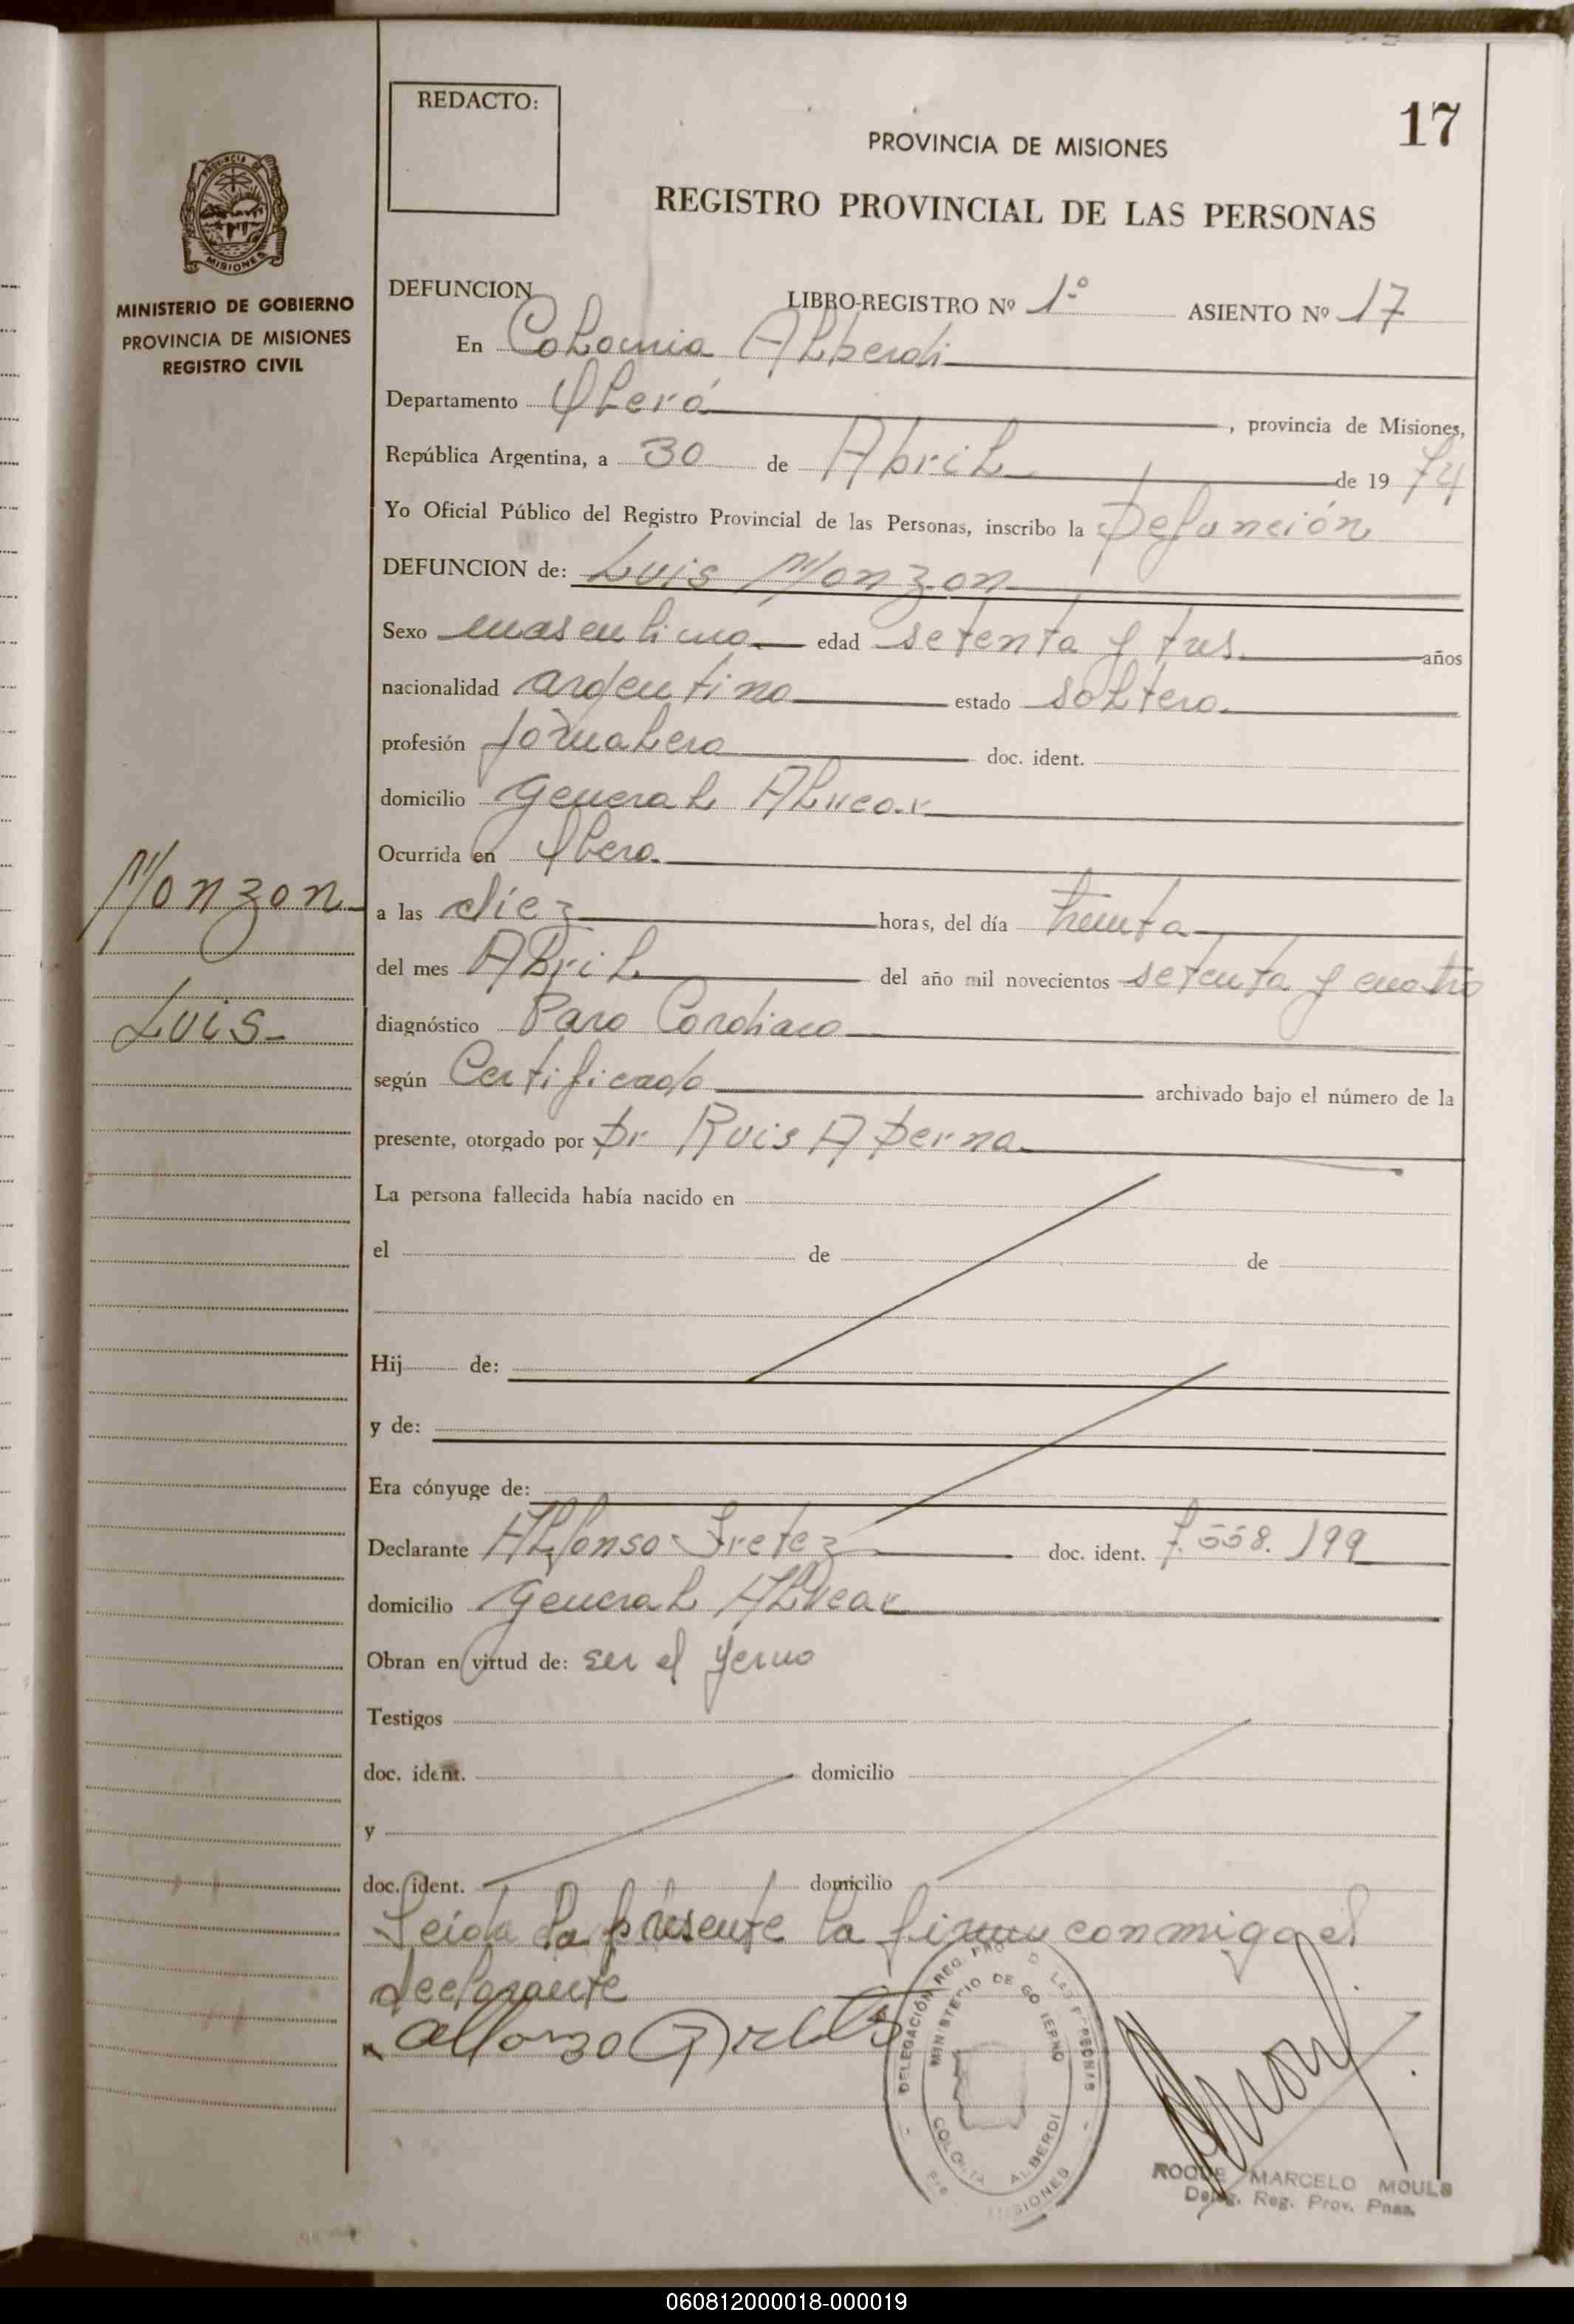 REDACTO:
17
PROVINCIA DE MISIONES
REGISTRO PROVINCIAL DE LAS PERSONAS
PROVINCIA DE
MISIONES
MINISTERIO DE GOBIERNO
PROVINCIA DE MISIONES
REGISTRO CIVIL
DEFUNCION
LIBRO-REGISTRO Nº 1º ASIENTO Nº 17
En Colonia Alberdi
Departamento Oberá, provincia de Misiones,
República Argentina, a 30 de Abril de 19 74
Yo Oficial Público del Registro Provincial de las Personas, inscribo la Defunción
DEFUNCION de: Luis Monzon
Sexo masculino edad setenta y tres años
nacionalidad argentino estado soltero
profesión jornalero doc. ident.
domicilio General Alvear
Ocurrida en Obera
Monzon
a las diez horas, del día treinta
del mes Abril del año mil novecientos setenta y cuatro
Luis
diagnóstico Paro Cardiaco
según Certificado archivado bajo el número de la
presente, otorgado por Dr Ruis A Derna
La persona fallecida había nacido en
el de de
Hij de:
y de:
Era cónyuge de:
Declarante Alfonso Fretez doc. ident. 7.558.199
domicilio General Alvear
Obran en virtud de: ser el yerno
Testigos
doc. ident. domicilio
y
doc. ident. domicilio
Leida la presente la firma conmigo el
declarante
DELEGACIÓN REG. PROV. D LAS PERSONAS
MINISTERIO DE GOBIERNO
COLONIA ALBERDI
MISIONES
ROQUE MARCELO MOULS
Deleg. Reg. Prov. Pnas.
060812000018-000019